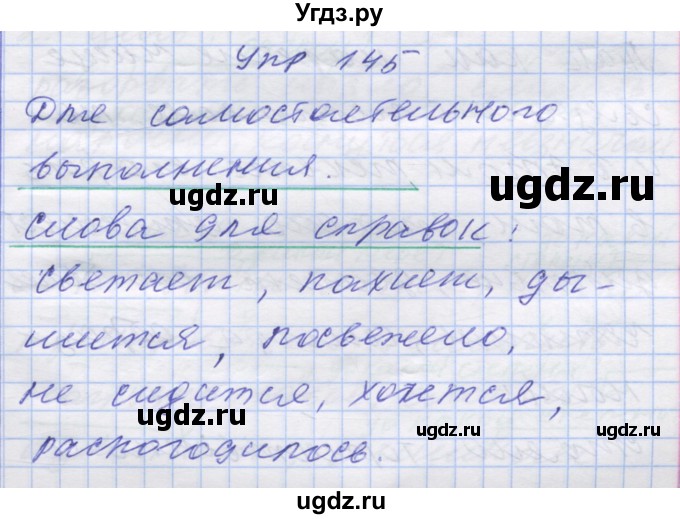 Угдз.ру
Упр 145
Для самостоятельного
выполнения.
ugdz.ru
ugdz.ru
Слова для справок:
светает, пахнет, ды-
шится, посвежело,
не сидится, хочется,
ugdz.ru
ugdz.ru
распогодилось.
ugdz.ru